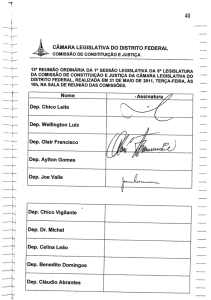 40
CÂMARA LEGISLATIVA DO DISTRITO FEDERAL
COMISSÃO DE CONSTITUIÇÃO E JUSTIÇA
13ª REUNIÃO ORDINÁRIA DA 1ª SESSÃO LEGISLATIVA DA 6ª LEGISLATURA
DA COMISSÃO DE CONSTITUIÇÃO E JUSTIÇA DA CÂMARA LEGISLATIVA DO
DISTRITO FEDERAL, REALIZADA EM 31 DE MAIO DE 2011, TERÇA-FEIRA, ÀS
10h, NA SALA DE REUNIÃO DAS COMISSÕES.
Nome Assinatura
Dep. Chico Leite
Dep. Wellington Luiz
Dep. Olair Francisco
Dep. Aylton Gomes
Dep. Joe Valle
Dep. Chico Vigilante
Dep. Dr. Michel
Dep. Celina Leão
Dep. Benedito Domingos
Dep. Cláudio Abrantes